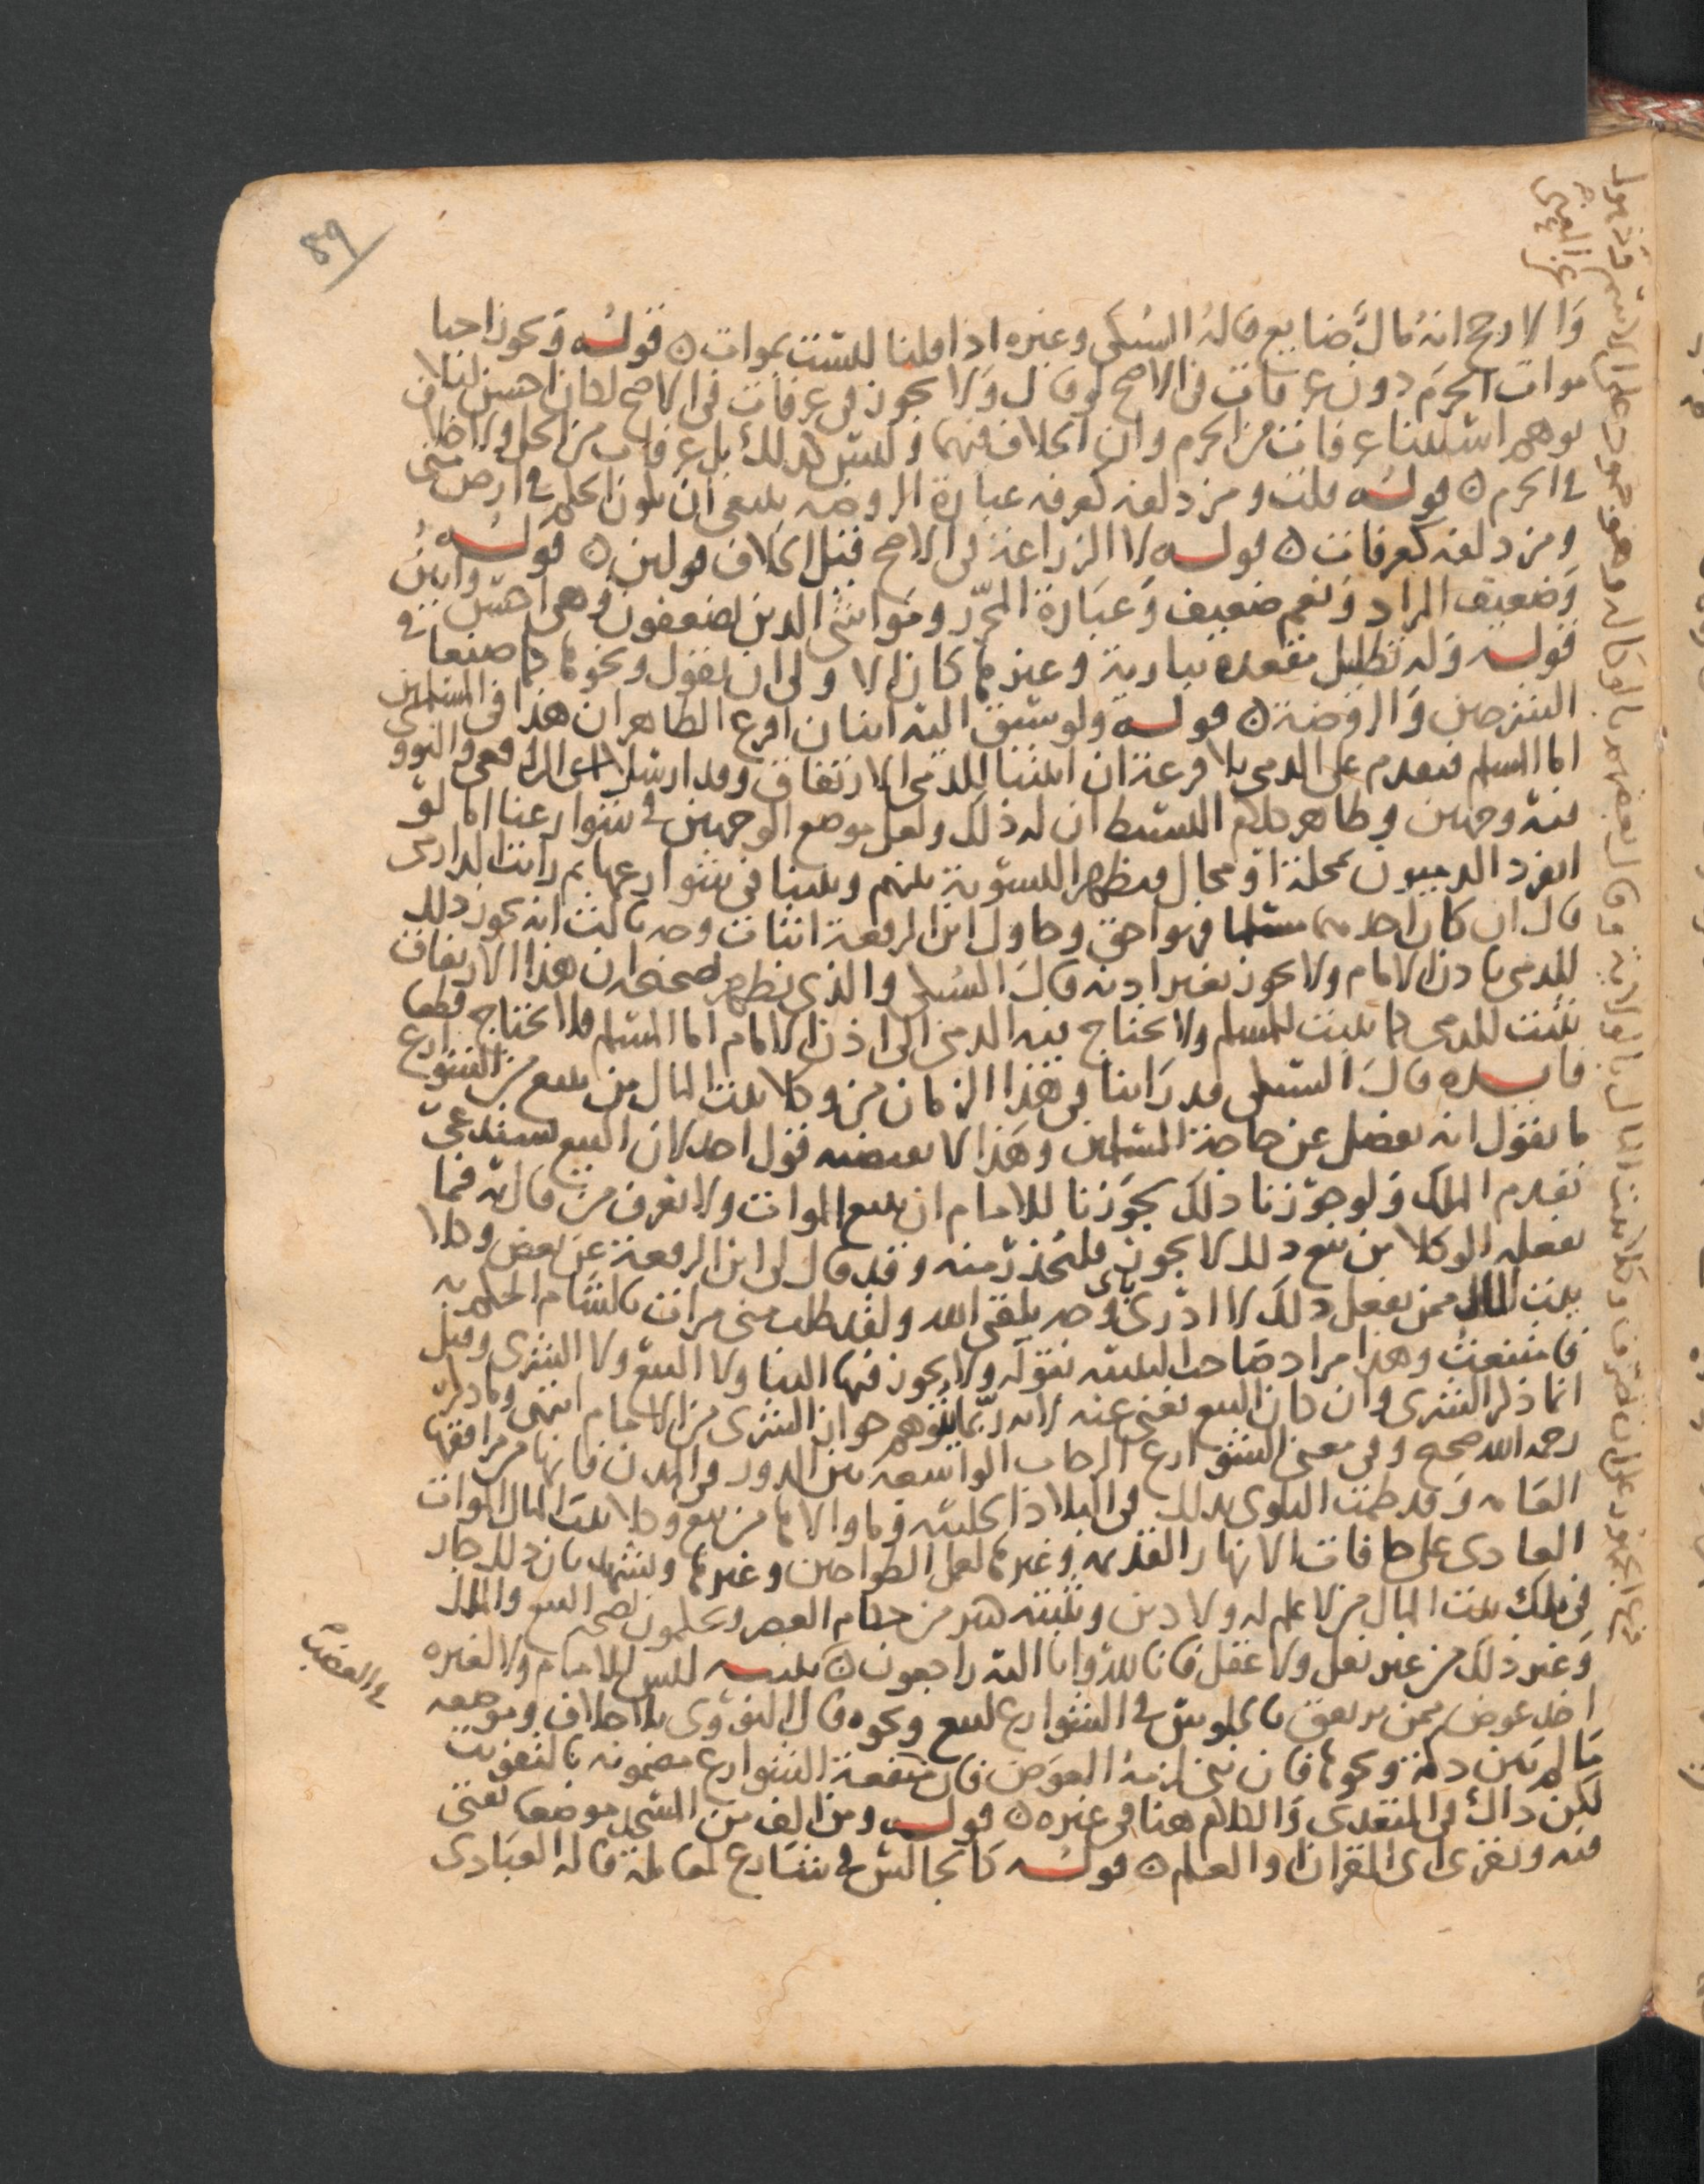 89
والارجح انه مال ضايع قاله السبكي وغيره اذا قلنا ليست بموات ۞ قوله ويجوز احيا
موات الحرم دون عرفات في الاصح لو قال ولا يجوز في عرفات في الاصح لكان احسن لئلا
يوهم استثناء عرفات من الحرم وان الخلاف فيهما وليس كذلك بل عرفات من الحل ولا خلاف
في الحرم ۞ قوله قلت ومزدلفة كعرفه عبارة الروضه ينبغي ان يكون الحكم في ارض منى
ومزدلفه كعرفات ۞ قوله لا الزراعة في الاصح قيل الخلاف قولين ۞ قوله
وضعيف المراد ونعم ضعيف وعبارة المحرر ومواشي الذين يضعفون وهي احسن وابين
قوله وله تظليل مقعده ببارية وغيرها كان الاولى ان يقول ونحوها كما صنعا في
الشرحين والروضة ۞ قوله ولو سبق اليه اثنان اقرع الظاهر ان هذا في المسلمين
اما المسلم فيقدم على الذمي بلا قرعة ان اثبتنا للذمي الارتفاق وقد ارسلا الرافعي والنووي
فيه وجهين وظاهر كلام البسيط ان له ذلك ولعل موضع الوجهين في شوارعنا اما لو
انفرد الذميون بمحلة او محال فيظهر التسوية بينهم وبيننا في شوارعها ثم رايت الدارمي
قال ان كان احدهما مسلما فهو احق وحاول ابن الرفعة اثبات وجه ثالث انه يجوز ذلك
للذمي باذن الامام ولا يجوز بغير اذنه قال السبكي والذي يظهر صحته ان هذا الارتفاق
يثبت للذمي كما يثبت للمسلم ولا يحتاج فيه الذمي الى اذن الامام اما المسلم فلا يحتاج قطعا
فايده قال السبكي قد راينا في هذا الزمان من وكلا بيت المال من يبيع من الشوارع
ما يقول انه يفضل عن حاجة المسلمين وهذا لا يقتضيه قول احد لان البيع يستدعي
تقدم الملك ولو جوزنا ذلك لجوزنا للامام ان يبيع الموات ولا نعرف من قال به فما
يفعله الوكلا من بيع ذلك لا يجوز فليحذر منه وقد قال لي ابن الرفعة عن بعض وكلا
بيت المال ممن يفعل ذلك لا ادري باي وجه يلقى الله ولقد طلب مني مرات بالشام الحكم به
فامتنعت وهذا مراد صاحب التنبيه بقوله ولا يجوز فيها البنا ولا البيع ولا الشرى وقيل
انما ذكر الشرى وان كان البيع يغني عنه لانه ربما يتوهم جواز الشرى من الامام انتهى وما ذكره
رحمه الله صحيح وفي معنى الشوارع الرحاب الواسعة بين الدور في المدن فانها من مرافقها
العامه وقد طمت البلوى بذلك في البلاد الحلبيه وما والاها من بيع وكلا بيت المال الموات
العادي على حافات الانهار القديمه وغيرها لعمل الطواحين وغيرها ويشهد بان ذلك جار
في ملك بيت المال من لا علم له ولا دين ويثبته كثير من حكام العصر ويحكمون بصحه البيع والملك
وغير ذلك من غير نقل ولا عقل فانا لله وانا اليه راجعون ۞ تنبيه ليس للامام ولا لغيره
اخذ عوض ممن يرتفق بالجلوس في الشوارع لبيع ونحوه قال النووي بلا خلاف وموضعه
ما لم يبن دكة ونحوها فان بنى لزمه العوض فان منفعة الشوارع مضمونه بالتفويت
لكن ذاك في المتعدي والكلام هنا في غيره ۞ قوله ومن الف من المسجد موضعا يفتي
فيه ويقرئ اي القران والعلم ۞ قوله كالجالس في شارع لمعاملة قاله العبادي